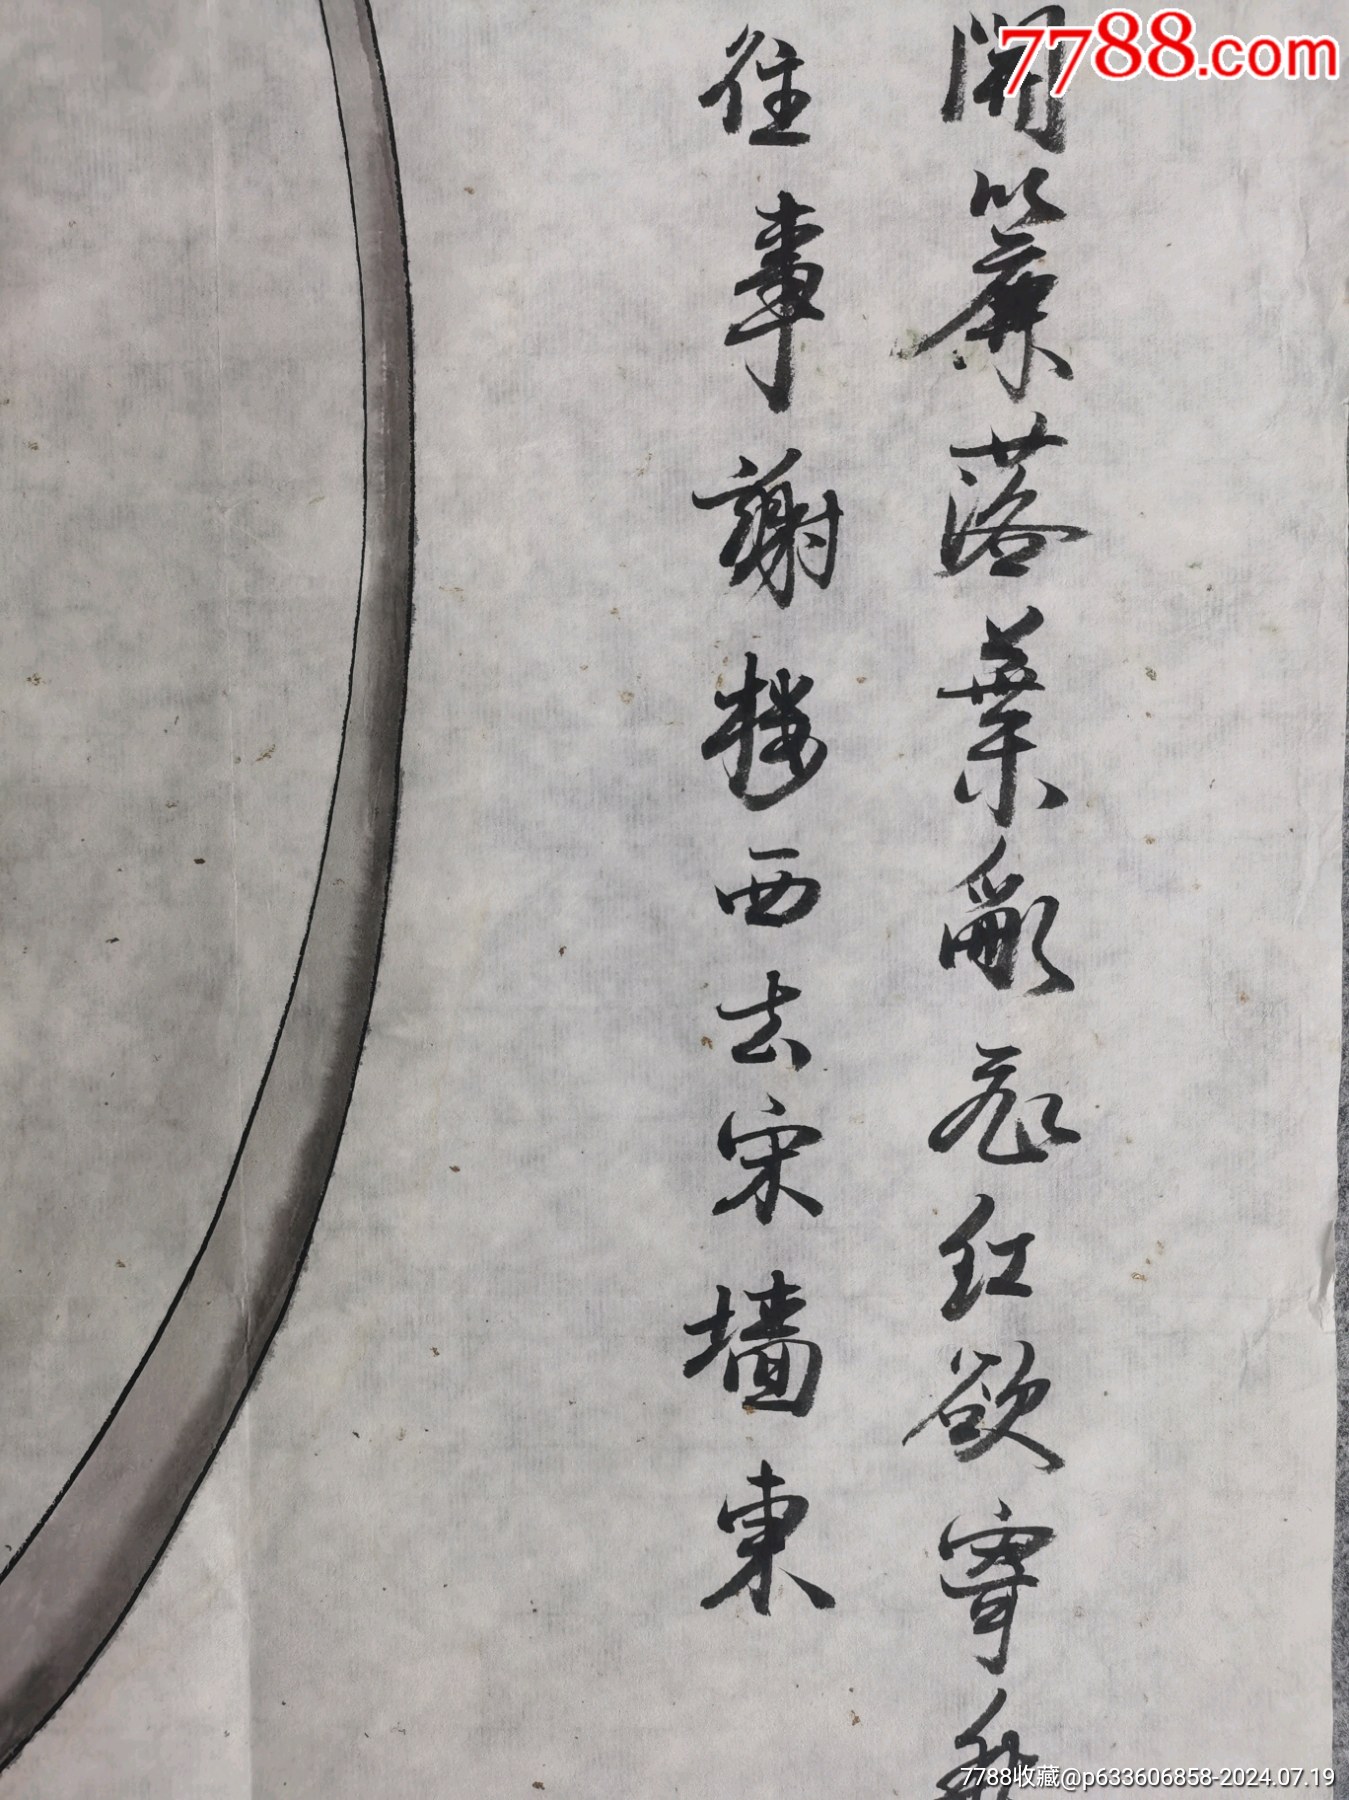 開簾落葉亂紅欲寄
往事謝樓西去宋墙東
7788.com
7788收藏@p633606858-2024.07.19